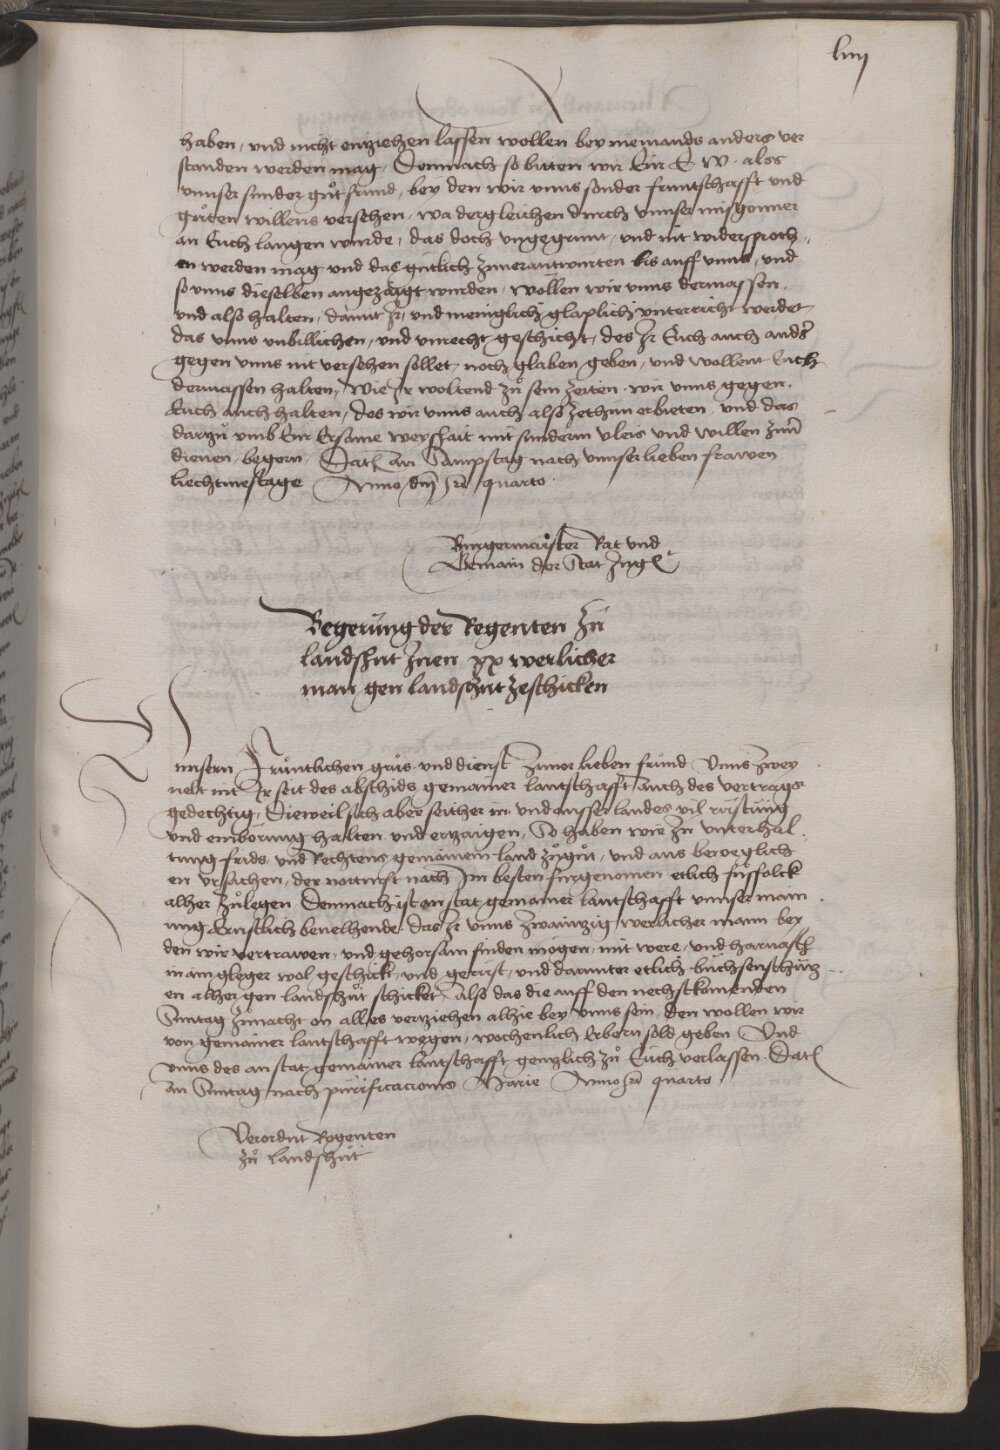 liiij
haben, vnd nicht entziehen lassen wollen bey niemands anders ver
standen werden mag, Demnach so bitten wir Eur E W. alos
vnnser sunder gůt frund, bey den wir vnns sonder fruntschafft vnd
gůten willens versehen, wa dergleichen durch vnnser misgonner
an Euch langen wurde, das doch vngegrunt, vnd nit widersproch„
en werden mag vnd das gutlich zuuerantwurten bis auff vnns, vnd
so vnns dieselben angezaigt wurden, wollen wir vnns dermassen,
vnd also halten, damit Ir, vnd meniglich glaplich vnterricht werdet
das vnns vnbillichen, vnd vnrecht geschicht, des Ir Euch auch anders
gegen vnns nit versehen sollet, noch glaben geben, vnd wollent Euch
dermassen halten, Wie Ir woltend zů sein zeiten wir vnns gegen,
Euch auch halten, des wir vnns auch also zethun erbieten, vnd das
dartzů vmb Eur Ersame weyshait mit sunderm vleis vnd willen zuu
dienen, begern. Dat an Sampstag nach vnnser lieben frawen
liechtmestage Anno dm̅ I̅c̅ quarto
Burgermaister Rat vnd
Gemain der Stat Ingl
Begerung der Regenten zu
landshut Inen xx werlicher
man gen landshut zeschicken
Vnnsern Fruntlichen grus vnd dienst zuuor lieben frund Vnns zwey
uelt nit Ir seit des abschids gemainer lantschafft auch des vertrags
gedechtig, Dieweil sich aber seither in vnd ausser landes vil rüstung
vnd emborung halten vnd ertzaigen, So haben wir zu vnterhal
tung frids, vnd Rechtens gemainem land zůgůt, vnd aus beweglich
en vrsachen, der notturft nach Im besten furgenomen etlich fůsfolck
alher zůlegen Demnach ist an stat gemainer lantschafft vnnser main
ung Ernstlich beuelhende das Ir vnns zwaintzig werlicher mann bey
den wir vertrawen, vnd gehorsam finden mögen, mit were, vnd harnasch
mangleger wol geschickt, vnd gerüst, vnd darunter etlich büchsenschütz
en alher gen landshůt schicket, Also das die auff den nechstkomenden
Suntag zůnacht on alles vertziehen alhie bey vnns sein, den wollen wir
von gemainer lantschafft wegen, wochenlich Erbern sold geben Vnd
vnns des an stat gemainer lantschafft gentzlich zů Euch verlassen. Dat
an Suntag nach purificacionis Marie Anno I̅c̅ quarto
Verordnt Regenten
zů landshut